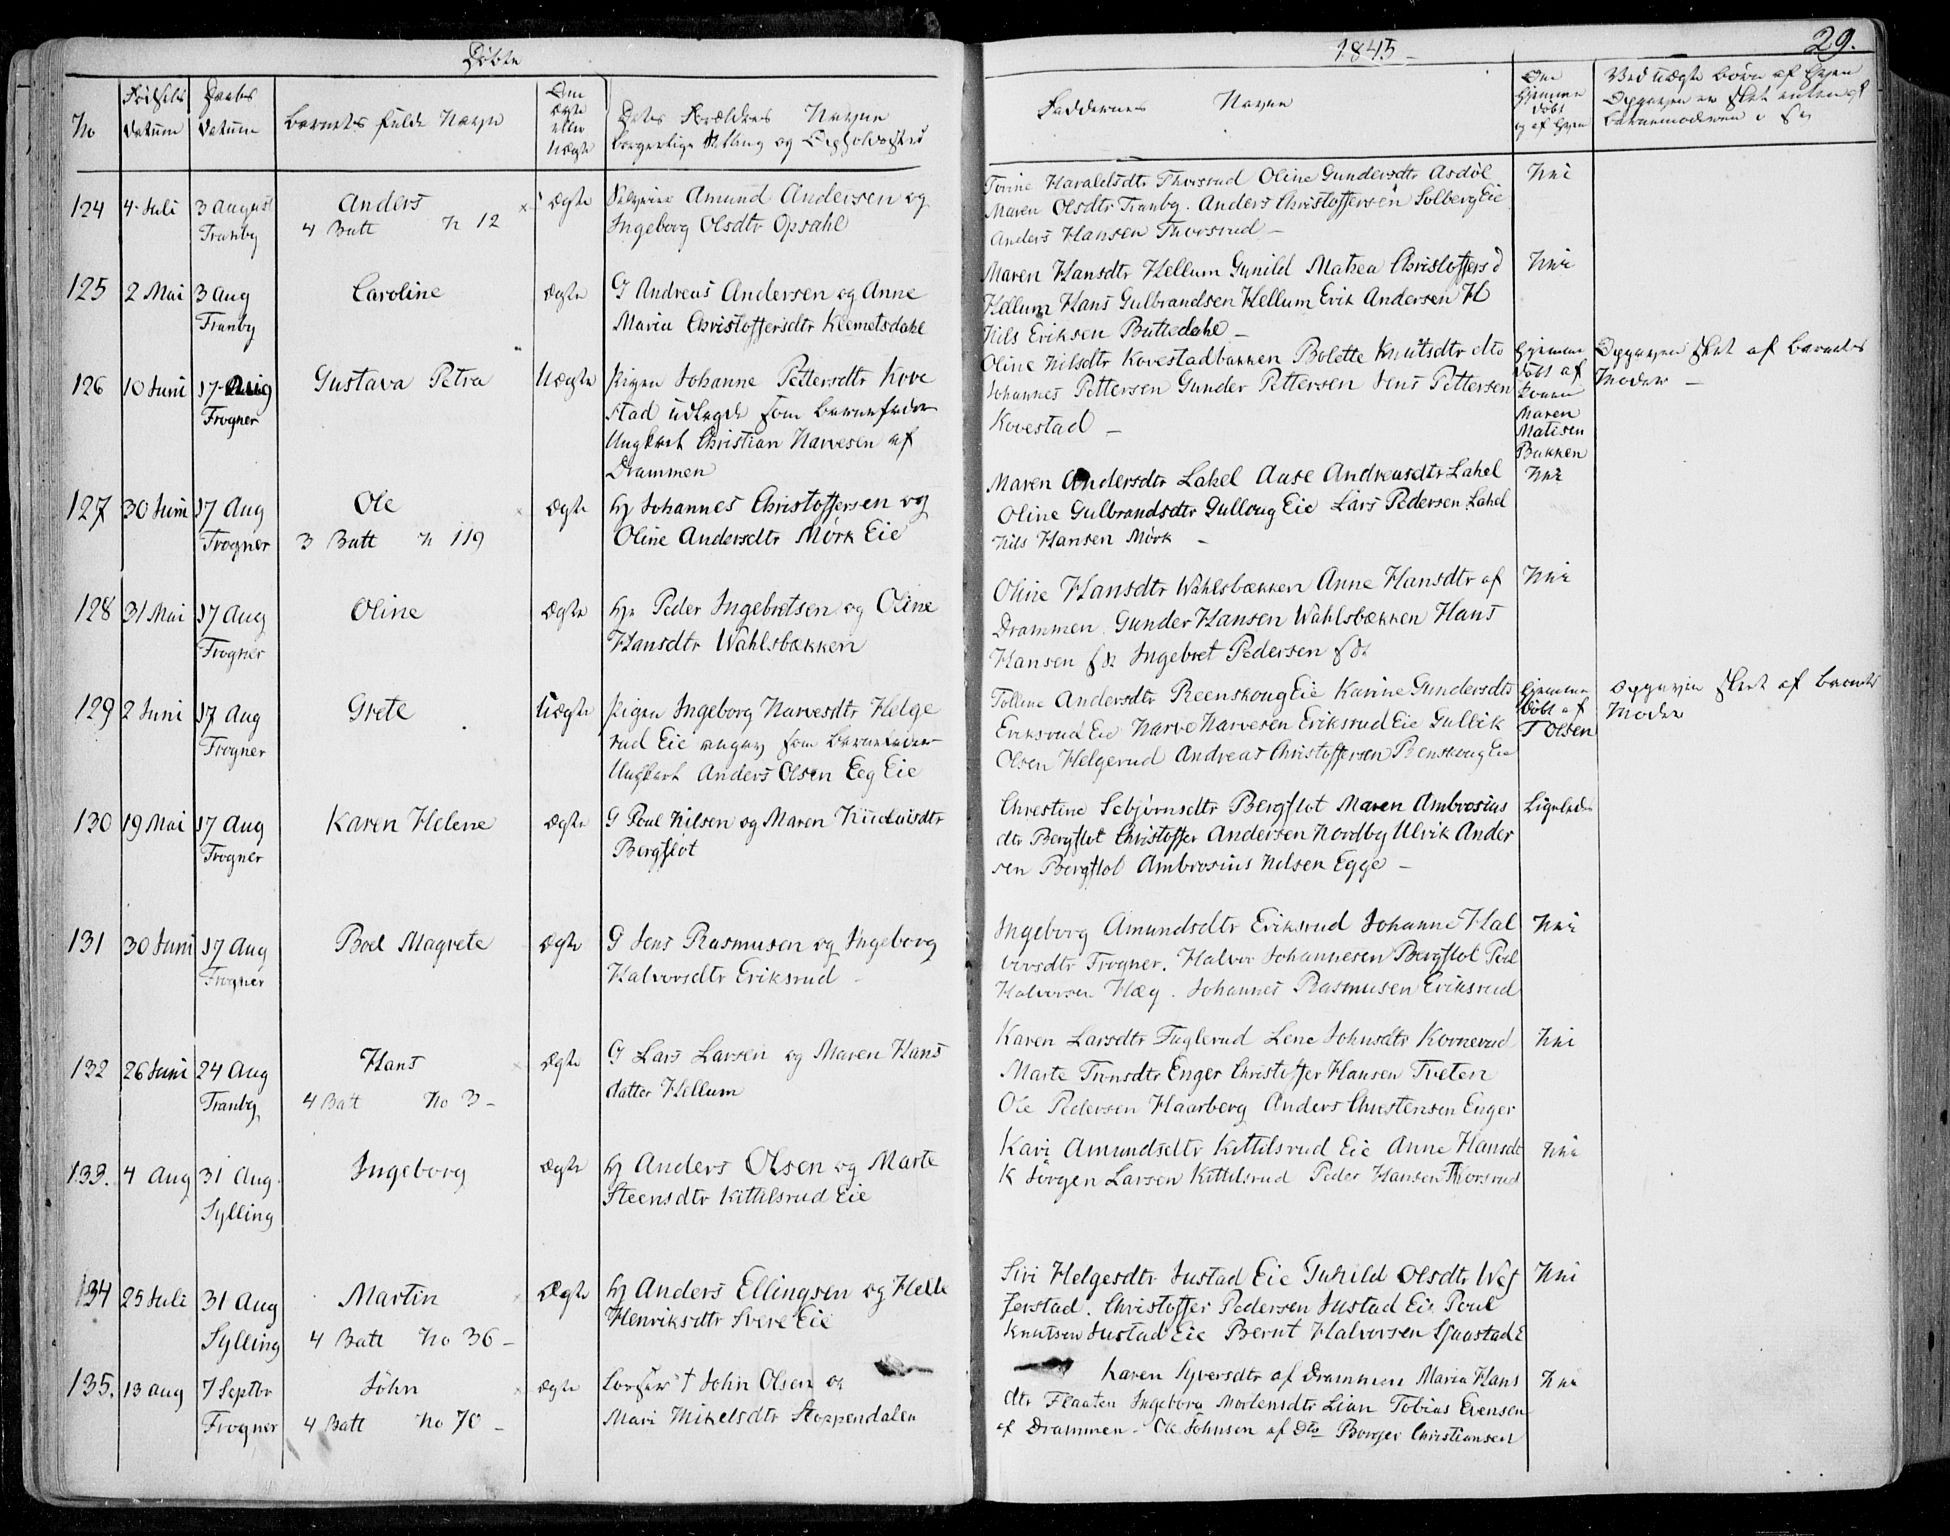 Døbte
1845 -
29.
No
Fødsels Datum
Daabs Datum
Barnets fulde Navn
Om ægte eller Uægte
Dets Forældres Navne borgerlige Stilling og Opholdssted
Faddernes Navne
Om hjemme døbt og af hvem
Ved uægte børn af hvem Opgaven er sket
124 4 Juli 3 August Tranby
Anders
4 Batt N 12
Ægte
Amund Andersen og
Ingeborg Olsdtr Opsahl
Torine Haraldsdtr Thorsrud Oline Gundersdtr Asdøl
Maren Olsdtr Tranby. Anders Christoffersen Solberg Eie
Anders Hansen Thorsrud -
Nei
125 2 Mai 3 Aug Tranby
Caroline
Ægte
G Andreas Andersen og Anne
Maria Christoffersdtr Klemetsdahl
Maren Hansdtr Hellum Gunild Mathea Christoffersd
Hellum Hans Gulbrandsen Hellum Erik Andersen H
Nils Eriksen Buttedahl -
Nei
126 10 Juni 17 Aug Frogner
Gustava Petra
Uægte
Pigen Johanne Pettersdtr Kove
stad udlagde som Barnefader
Ungkarl Christian Narvesen af
Drammen
Oline Nilsdtr Kovestadbakken Bolette Knutsdtr dto
Johannes Pettersen Gunder Pettersen Jens Pettersen
Kovestad -
Hjemme
døbt af
Maren
Matisen
Bakken
Opgaven sket af Barnets
Moder -
127 30 Juni 17 Aug Frogner
Ole
3 Batt N 119
Ægte
Hj Johannes Christoffersen og
Oline Andersdtr Mørk Eie
Maren Andersdtr Lahel Aase Andreasdtr Lahel
Oline Gulbrandsdtr Gulloug Eie Lars Pedersen Lahel
Nils Hansen Mørk -
Nei
128 31 Mai 17 Aug Frogner
Oline
Ægte
Hj Peder Ingebretsen og Oline
Hansdtr Wahlsbækken
Oline Hansdtr Wahlsbækken Anne Hansdtr af
Drammen. Gunder Hansen Wahlsbækken Hans
Hansen sst Ingebret Pedersen sst
Nei
129 2 Juni 17 Aug Frogner
Grete
Uægte
Pigen Ingeborg Narvesdtr Helge
rud Eie angav som Barnefader
Ungkarl Anders Olsen Eeg Eie
Tolline Andersdtr Reenskoug Eie Karine Gundersdtr
Eriksrud Eie Narve Narvesen Eriksrud Eie Gullik
Olsen Helgerud Andreas Christoffersen Renskoug Eie
Hjemme
døbt af
T Olsen
Opgaven sket af Barnets
Moder
130 19 Mai 17 Aug Frogner
Karen Helene
Ægte
G Poul Nilsen og Maren Nicolaisdtr
Bergflot
Christine Sebjørnsdtr Bergflot Maren Ambrosius
dtr Bergflot Christoffer Andersen Nordby Ulrik Ander
sen Bergflot Ambrosius Nilsen Egge -
Ligeledes
131 30 Juni 17 Aug Frogner
Boel Magrete
Ægte
G Jens Rasmusen og Ingeborg
Halvorsdtr Eriksrud -
Ingeborg Amundsdtr Eriksrud Johanne Hal
vorsdtr Frogner. Halvor Johannesen Bergflot Poul
Halvorsen Hæg. Johannes Rasmusen Eriksrud
Nei
132 26 Juni 24 Aug Tranby
Hans
4 Batt No 3 -
Ægte
G Lars Larsen og Maren Hans
datter Hellum
Karen Larsdtr Fuglerud Lene Johnsdtr Kornerud
Marte Tronsdtr Enger Christoffer Hansen Tveten
Ole Pedersen Haarberg Anders Christensen Enger
Nei
133. 4 Aug 31 Aug Sylling
Ingeborg
Ægte
Hj Anders Olsen og Marte
Steensdtr Kittilsrud Eie
Kari Amundsdtr Kittilsrud Eie Anne Hansdt
K Jørgen Larsen Kittilsrud Peder Hansen Thorsrud
Nei
134 25 Juli 31 Aug Sylling
Martin
4 Batt No 36 -
Ægte
Hj Anders Ellingsen og Helle
Henriksdtr Svere Eie
Siri Helgesdtr Justad Eie Gunild Olsdtr Wef
ferstad. Christoffer Pedersen Justad Eie Poul
Knutsen Justad Eie Bernt Halvorsen Sjaastad E
Nei
135. 13 Aug 7 Septbr Frogner
John
4 Batt No 70 -
Ægte
John Olsen og
Mari Mikelsdtr Stoppendalen
Karen Syversdtr af Drammen Maria Hans
dtr Flaaten Ingeborg Mortensdtr Lian Tobias Evensen
af Drammen - Ole Johnsen af Dto Borger Christiansen
Nei